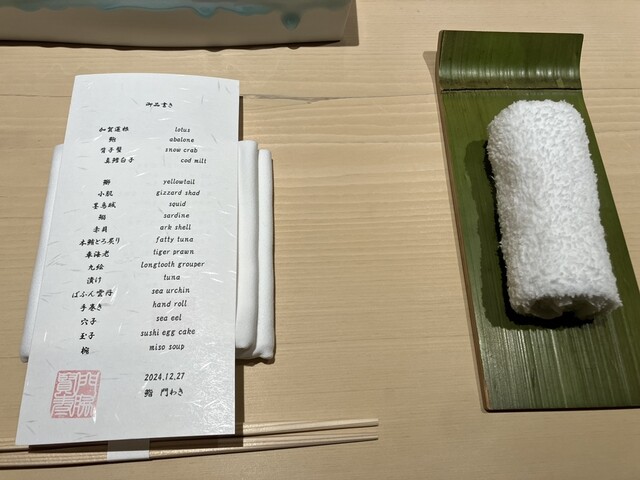 御品書き
加賀蓮根 lotus
鮑 abalone
香箱蟹 snow crab
真鱈白子 cod milt
鰤 yellowtail
小肌 gizzard shad
墨烏賊 squid
鰯 sardine
赤貝 ark shell
本鮪とろ炙り fatty tuna
車海老 tiger prawn
九絵 longtooth grouper
漬け tuna
ばふん雲丹 sea urchin
手巻き hand roll
穴子 sea eel
玉子 sushi egg cake
椀 miso soup
2024.12.27
鮨 門わき